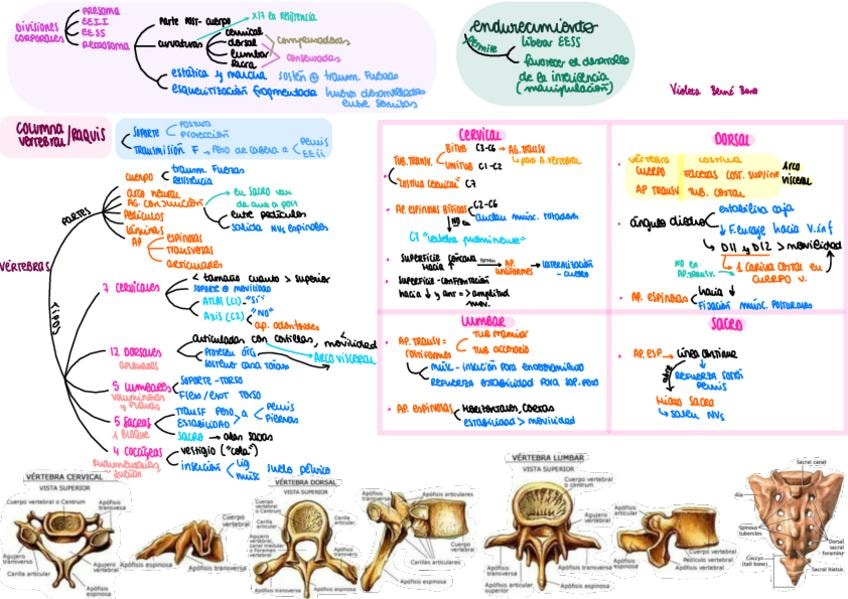 DIVISIONES CORPORALES
PRESOMA
EEII
EESS
RETROSOMA
Parte post. cuerpo
curvaturas
x17 la resistencia
cervical
dorsal
lumbar
sacra
compensadoras
conservadas
estática y marcha sostén ⊕ transm. Fuerzas
esqueletización fragmentada huesos desarrollados entre somitas
endurecimiento
permite
liberar EESS
favorecer el desarrollo
de la inteligencia
(manipulación)
Violeta Berné
COLUMNA VERTEBRAL/RAQUIS
SOPORTE
postura
protección
TRANSMISIÓN F → Peso de cabeza a
Pelvis
EEII
VÉRTEBRAS
PARTES
cuerpo
transm. Fuerzas
Resistencia
arco neural
AG. conjunción
en sacro van de ant a post
Pedículos
entre pedículos
salida NVs espinales
láminas
AP
espinosas
transversas
articulares
TIPOS
7 cervicales
< tamaño cuanto > superior
soporte ⊕ movilidad
ATLAS (C1) - "Sí"
Axis (C2) - "NO"
ap. odontoides
12 DORSALES
aplanadas
articuladas con costillas, < movilidad
protección órg
sostener caja torax
ARCO VISCERAL
5 lumbares
voluminosas y planas
SOPORTE - TORSO
Flexo/ext TORSO
5 sacras
1 bloque
TRANSF PESO
ESTABILIDAD
a
Pelvis
Piernas
sacro → alas sacras
4 coccígeas
rudimentarias
vestigio ("cola")
inserción
lig
musc
suelo pélvico
CERVICAL
TUB. TRANSV.
BITUB C3-C6 → AG. TRANSV
↳ para A. vertebral
UNITUB C1-C2
"costilla cervical" C7
AP. ESPINOSAS BIFIDAS C2-C6
NO en
anclan musc. rotadores
C7 "vertebra prominente"
SUPERFICIE CÓNCAVA hacia ↑
AP. UNIFORMES
→ lateralización - cuerpo
SUPERFICIE - CONFRONTACIÓN
hacia ↓ y ant = > amplitud mov.
DORSAL
VÉRTEBRA
COSTILLA
CUERPO
FACETAS COST. SUP/INF
AP TRANSV
TUB. COSTAL
ARCO VISCERAL
ángulo diedro
estabiliza caja
↓ F. encaje hacia V. inf
↳ D11 y D12 > movilidad
NO en AP. TRANSV.
1 carilla costal en CUERPO V.
AP. ESPINOSAS
hacia ↓
Fijación musc. posturales
LUMBAR
AP. TRANSV = costiformes
TUB mamilar
TUB accesorio
MUSC - inserción para enderezamiento
REFUERZA ESTABILIDAD PARA SOP. PESO
AP. ESPINOSAS
HORIZONTALES, CORTAS
estabilidad > movilidad
SACRO
AP. ESP → línea continua
REFUERZA
pelvis
HIATO SACRO
↳ salen NVs
VÉRTEBRA CERVICAL
VISTA SUPERIOR
Cuerpo vertebral o Centrum
Apófisis transversa
Agujero transverso
Carilla articular
Agujero vertebral
Apófisis espinosa
Cuerpo vertebral
Apófisis transversa
Apófisis espinosa
VÉRTEBRA DORSAL
VISTA SUPERIOR
Cuerpo vertebral o centrum
Carilla articular
Apófisis transversa
Apófisis espinosa
Apófisis transversa
Apófisis articulares
Cuerpo vertebral
Carillas articulares
Apófisis espinosa
VÉRTEBRA LUMBAR
VISTA SUPERIOR
Cuerpo vertebral o centrum
Agujero vertebral
Apófisis transversa
Carilla articular
Apófisis espinosa
Apófisis articulares
Cuerpo vertebral
Pedículo vertebral
Apófisis transversa
Apófisis espinosa
Sacral canal
Ala
Spinous tubercles
Dorsal sacral foramina
Coccyx (tail bone)
Sacral hiatus